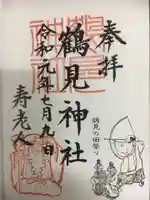 奉拝
鶴見神社
鶴見の田祭り
令和元年七月九日
寿老人